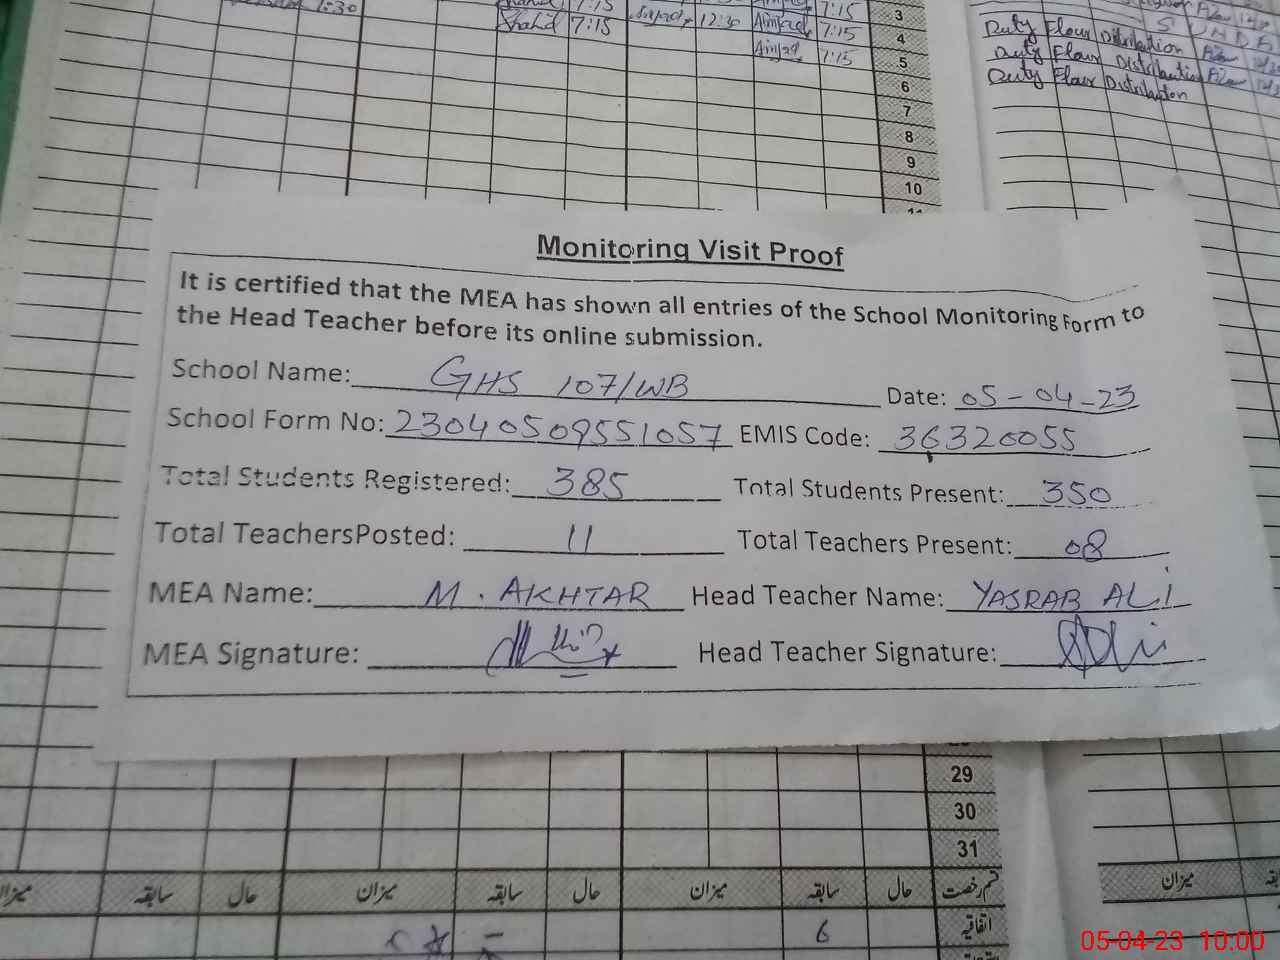 1:30
Shahid 7:15 12:30 Aimjad 7:15
7:15
Aimjad 7:15
3
4
5
6
7
8
9
10
Duty Flour Distribution
Duty Flour Distribution
Duty Flour Distribution
Monitoring Visit Proof
It is certified that the MEA has shown all entries of the School Monitoring Form to
the Head Teacher before its online submission.
School Name: GHS 107/WB Date: 05-04-23
School Form No: 23040509551057 EMIS Code: 36320055
Total Students Registered: 385 Total Students Present: 350
Total TeachersPosted: 11 Total Teachers Present: 08
MEA Name: M. AKHTAR Head Teacher Name: YASRAB ALi
MEA Signature: Head Teacher Signature:
29
30
31
قسم رخصت حال سابقہ میزان حال سابقہ میزان حال سابقہ میزان
میزان
اتفاقیہ 6
05-04-23 10:00